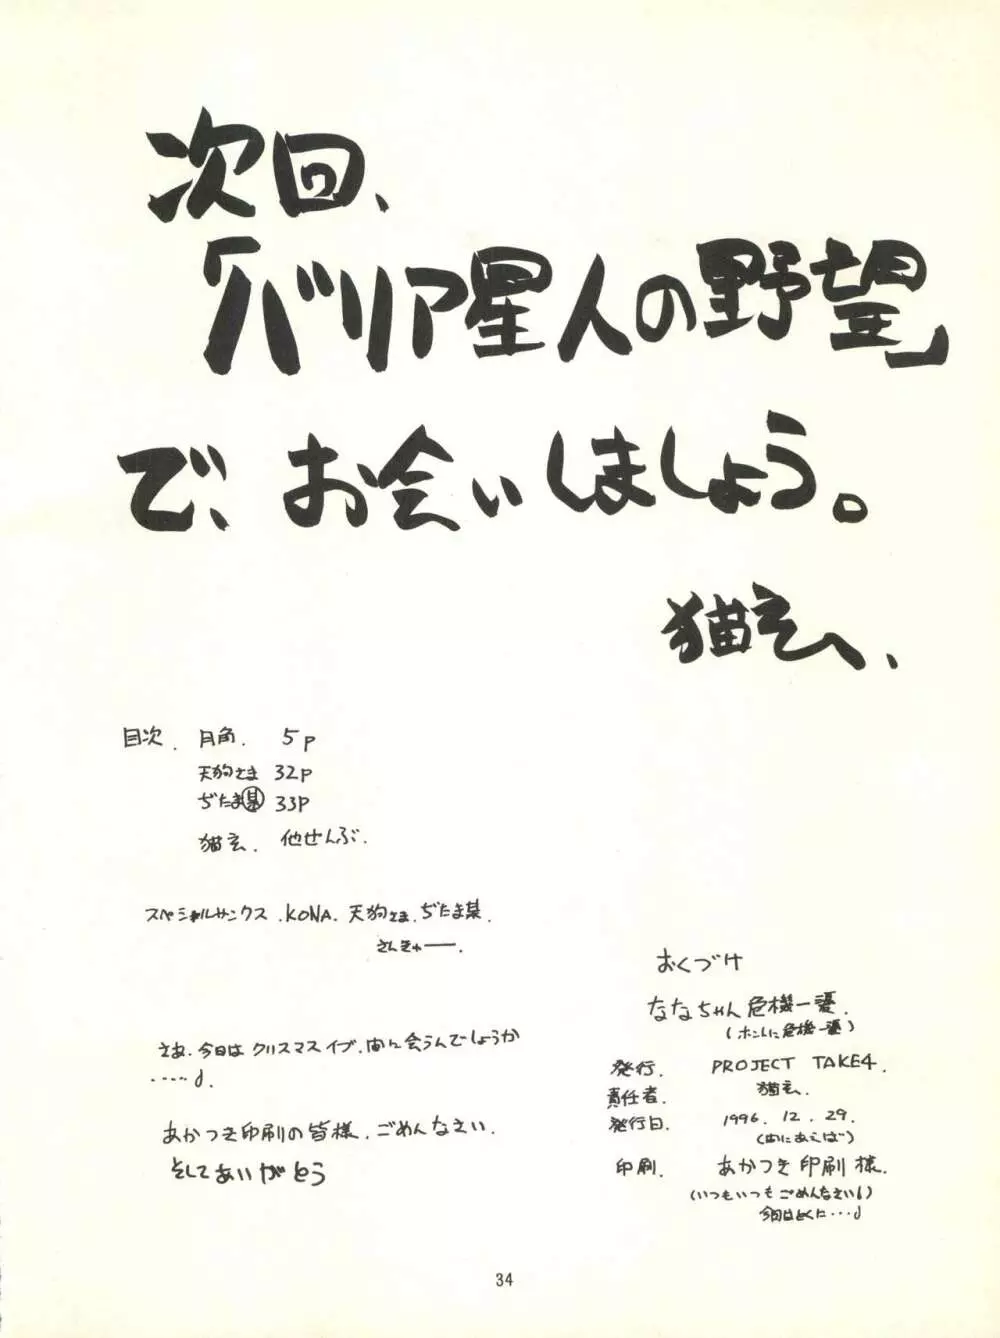 次回、
「バリア星人の野望」
で、お会いしましょう。
猫玄、
目次、月角、5p
天狗さま 32p
ぢたま某 33p
猫玄、他せんぶ、
スペシャルサンクス、KONA、天狗さま、ぢたま某、
さんきゅー、
さあ、今日はクリスマスイブ、間に会うんでしょうか
・・・・・♪
あかつき印刷の皆様、ごめんなさい、
そしてありがとう
おくづけ
ななちゃん危機一髪、
(ホントに危機一髪)
発行、PROJECT TAKE4、
責任者、猫玄、
発行日、1996.12.29、
(間にあえば)
印刷、あかつき印刷様、
(いつもいつもごめんなさい♪)
今回はとくに・・・♪
34